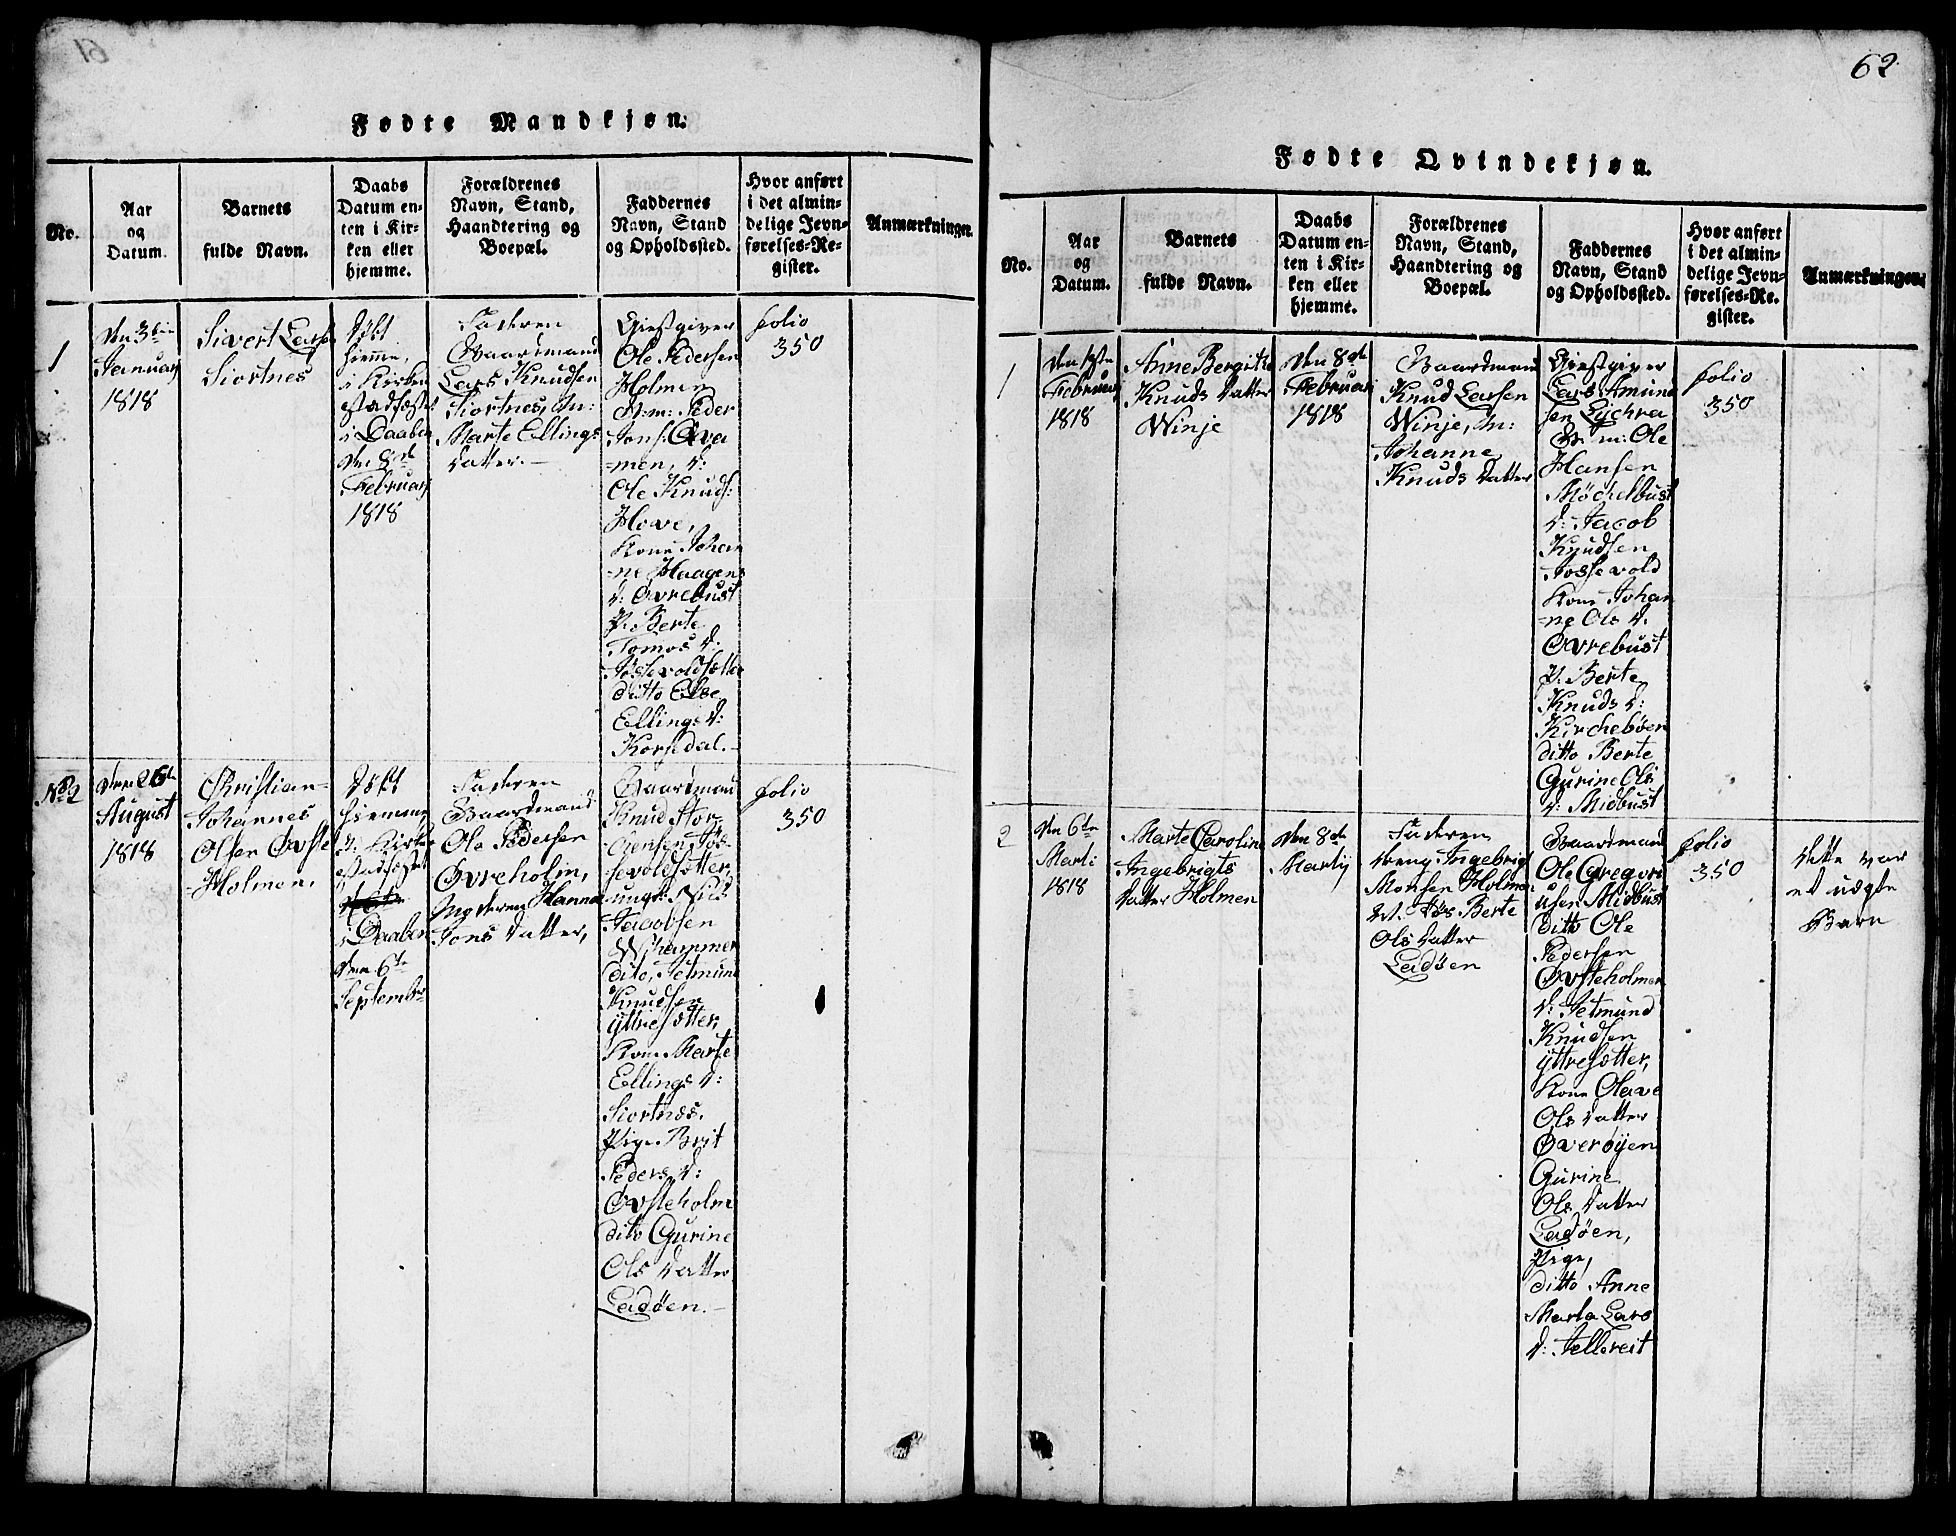 61
Fødte Mandkjøn.
No.
Aar
og
Datum.
Barnets
fulde Navn.
Daabs
Datum en-
ten i Kir-
ken eller
hjemme.
Forældrenes
Navn, Stand,
Haandtering og
Boepæl.
Faddernes
Navn, Stand
og Opholdssted.
Hvor anført
i det almin-
delige Jevn-
førelses-Re-
gister.
Anmærkninger.
1
den 3die
Januarj
1818
Sivert Lars
Siortnes
døbt
hiemme,
i Kirken
stadfæstet
i Daaben
den 8de
Februarj
1818
Faderen
Gaardmand
Lars Knudsen
Siortnes, M:
Marte Ellings
datter.-
Giestgiver
Ole Pedersen
Holmen
Peder
Jons:
men, d:
Ole Knuds:
Hove,
Kone Johan
-ne Haagens
d: Øvrebust
P. Berte
Tomos d.
ditto Else
Ellings d:
Korsdal.-
folio
350
No 2
den 26de
August
1818
Christian-
Johannes
Olsen Øvste
Holmen.
døbt
hiemme
i Kirken
stadfæstet
i Daaben
den 6te
Septembr
Faderen
Gaardmand
Ole Pedersen
Øvreholm,
Moderen Hanna
Jons datter,
Gaardmand
Knud
ungk: Nils
Jacobsen
dito, Jetmund
Knudsen
Yttresætter,
Kone Marte
Ellings d:
Siortnæs.
Pige Brit
Peders d:
Øvsteholm
dito Gurine
Ols datter
Ladøen.-
folio
350
62
Fødte Qvindekjøn.
No.
Aar
og
Datum.
Barnets
fulde Navn.
Daabs
Datum en-
ten i Kir-
ken eller
hjemme.
Forældrenes
Navn, Stand,
Haandtering og
Boepæl.
Faddernes
Navn, Stand
og Opholdssted.
Hvor anført
i det almin-
delige Jevn-
førelses-Re-
gister.
Anmærkninger.
1
den 1ste
Februarj
1818
Anne Bergitte
Knuds datter
Winje
den 8de
Februari
1818
Gaardmand
Knud Larsen
Winje, M:
Johanne
Knuds datter
Giestgiver
Lars Amund
sen
Ole
Hansen
Möchelbust
d: Jacob
Knudsen
Jossevold
Kone Johan
-ne Ols d.
Øvrebust
P. Berte
Knuds d:
Kirchebøen
ditto Berte
Gurine Ols
d: Midbust
folio
350
2
den 6te
Marti
1818
Marte Carolin
Ingebrigts
datter Holmen
den 8de
Martij
Faderen
dreng Ingebrigt
Monsen Holmen
Berte
Ols datter
Ladøen
Gaardmand
Ole Gregori
usen Midbust
ditto Ole
Pedersen
Øvsteholmen
d: Jetmund
Knudsen
Yttresætter,
Kone Olave
Ols datter
Øverøyen
Gurine
Ols datter
Ladøen,
Pige,
ditto Anne
Marta Lars
d: Jellereit
folio
350
dette var
et uægte
Barn